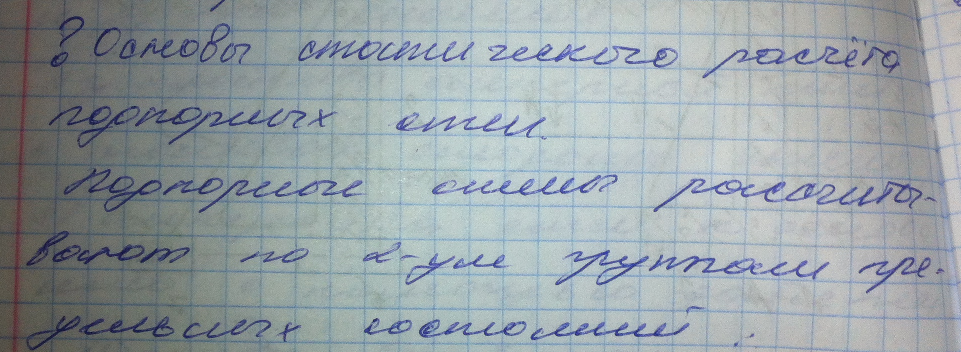 ? Основы статического расчёта
подпорных стен.
Подпорные стены рассчиты-
вают по 2-ум группам пре-
дельных состояний :